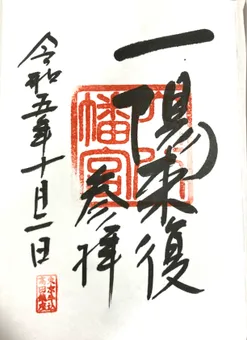 一陽来復
参拝
幡宮
令和五年十月二日